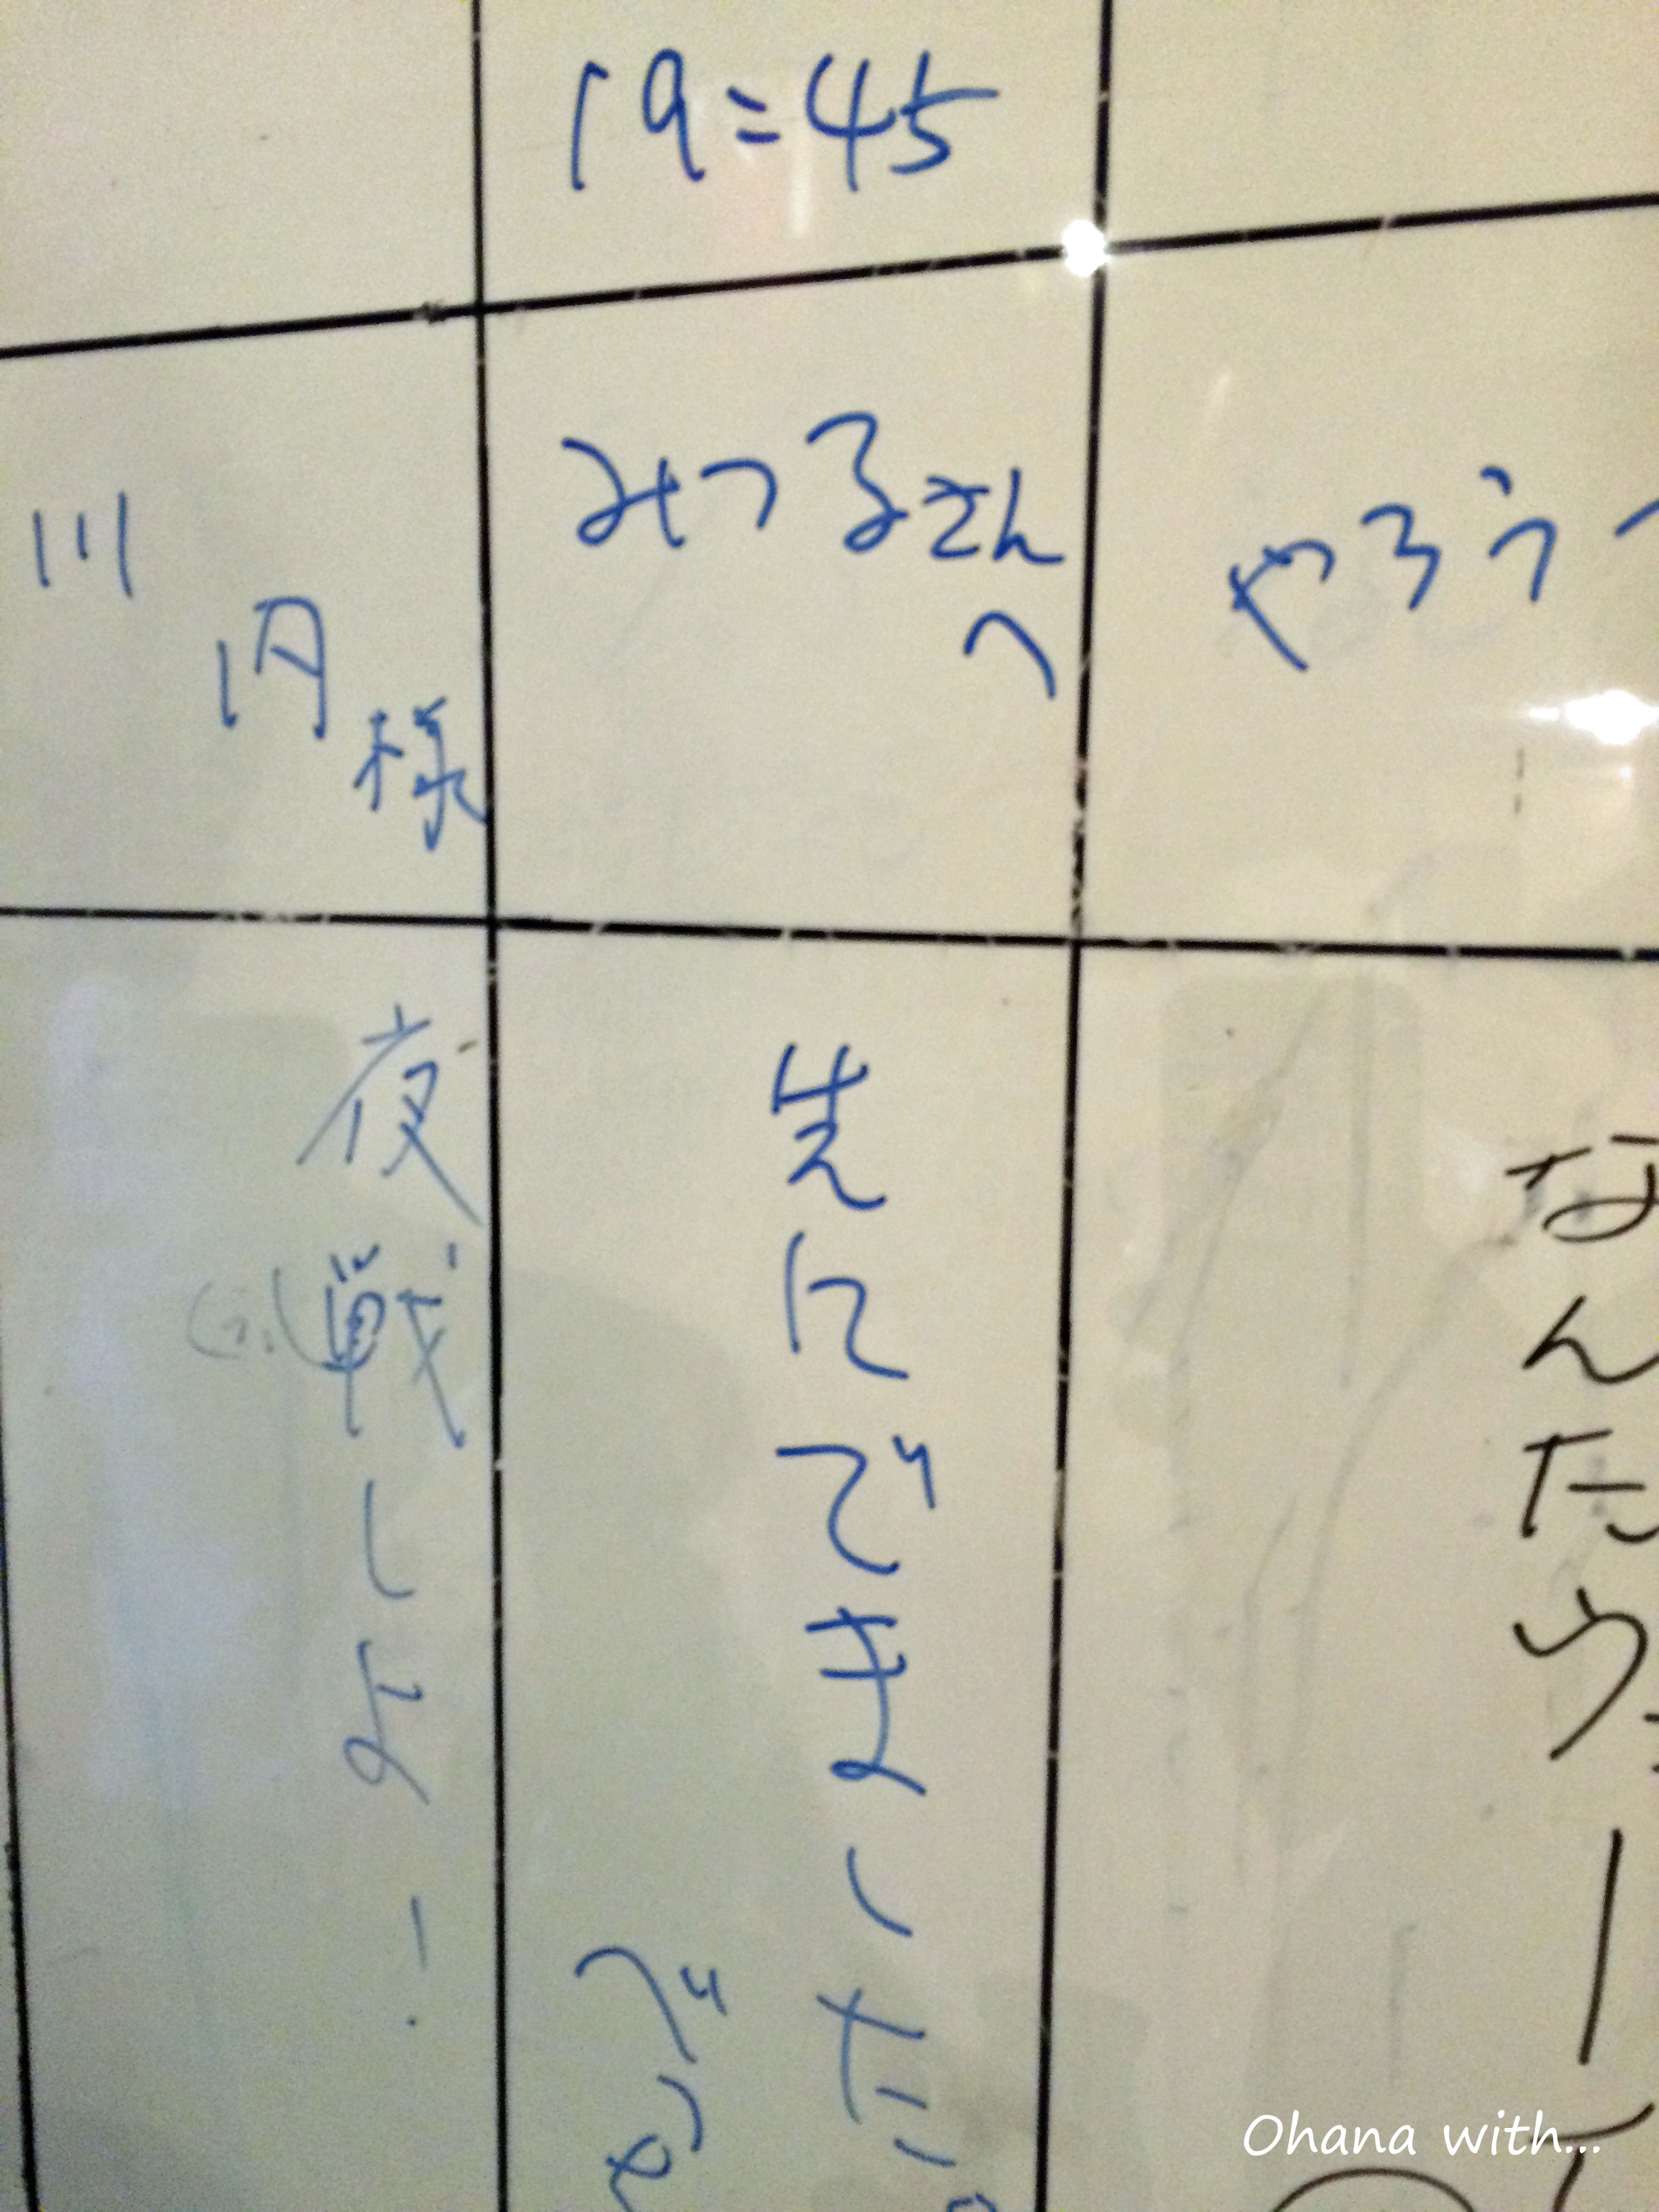 19=45
みつるさん
へ
やろう
川
円
様
なんだ
先にでました
べつ
夜戦しよ!
Ohana with...